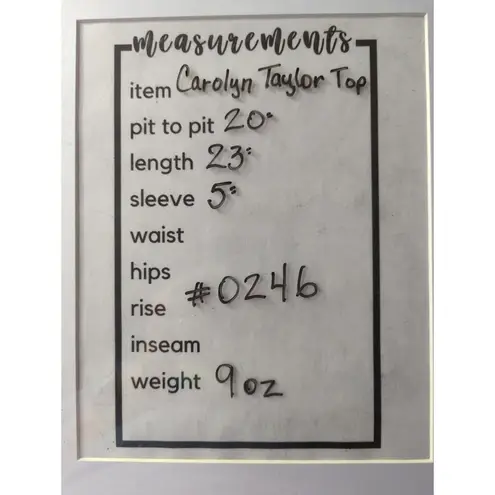 measurements
item Carolyn Taylor Top
pit to pit 20"
length 23"
sleeve 5"
waist
hips
#0246
rise
inseam
weight 9oz